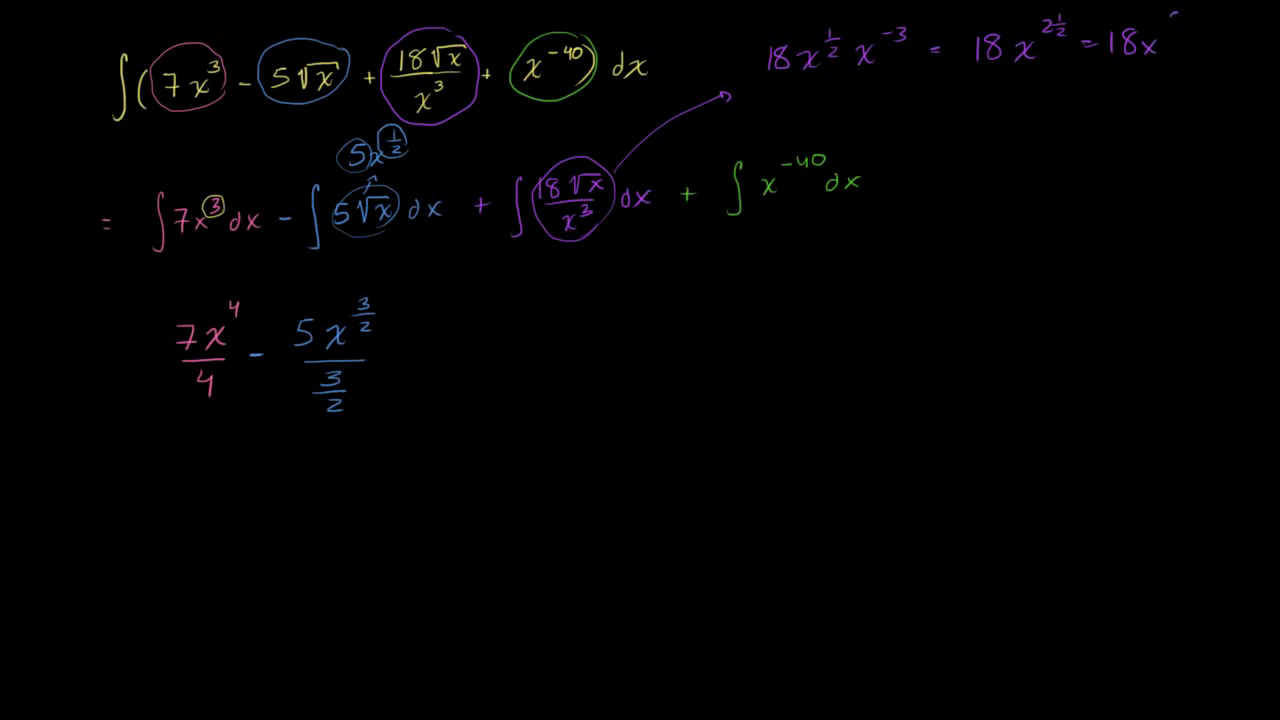 ∫(7x³ - 5√x + 18√x/x³ + x⁻⁴⁰) dx
18x^(1/2) x⁻³ = 18x^(2 1/2) = 18x
5x^(1/2)
= ∫7x³dx - ∫5√x dx + ∫18√x/x³ dx + ∫x⁻⁴⁰dx
7x⁴/4 - 5x^(3/2)/(3/2)